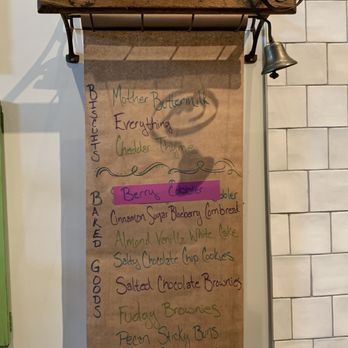 BISCUITS
Mother Buttermilk
Everything
Cheddar Thyme
BAKED GOODS
Berry Cobbler
Cinnamon Sugar Blueberry Cornbread
Almond Vanilla White Cake
Salty Chocolate Chip Cookies
Salted Chocolate Brownies
Fudgy Brownies
Pecan Sticky Buns